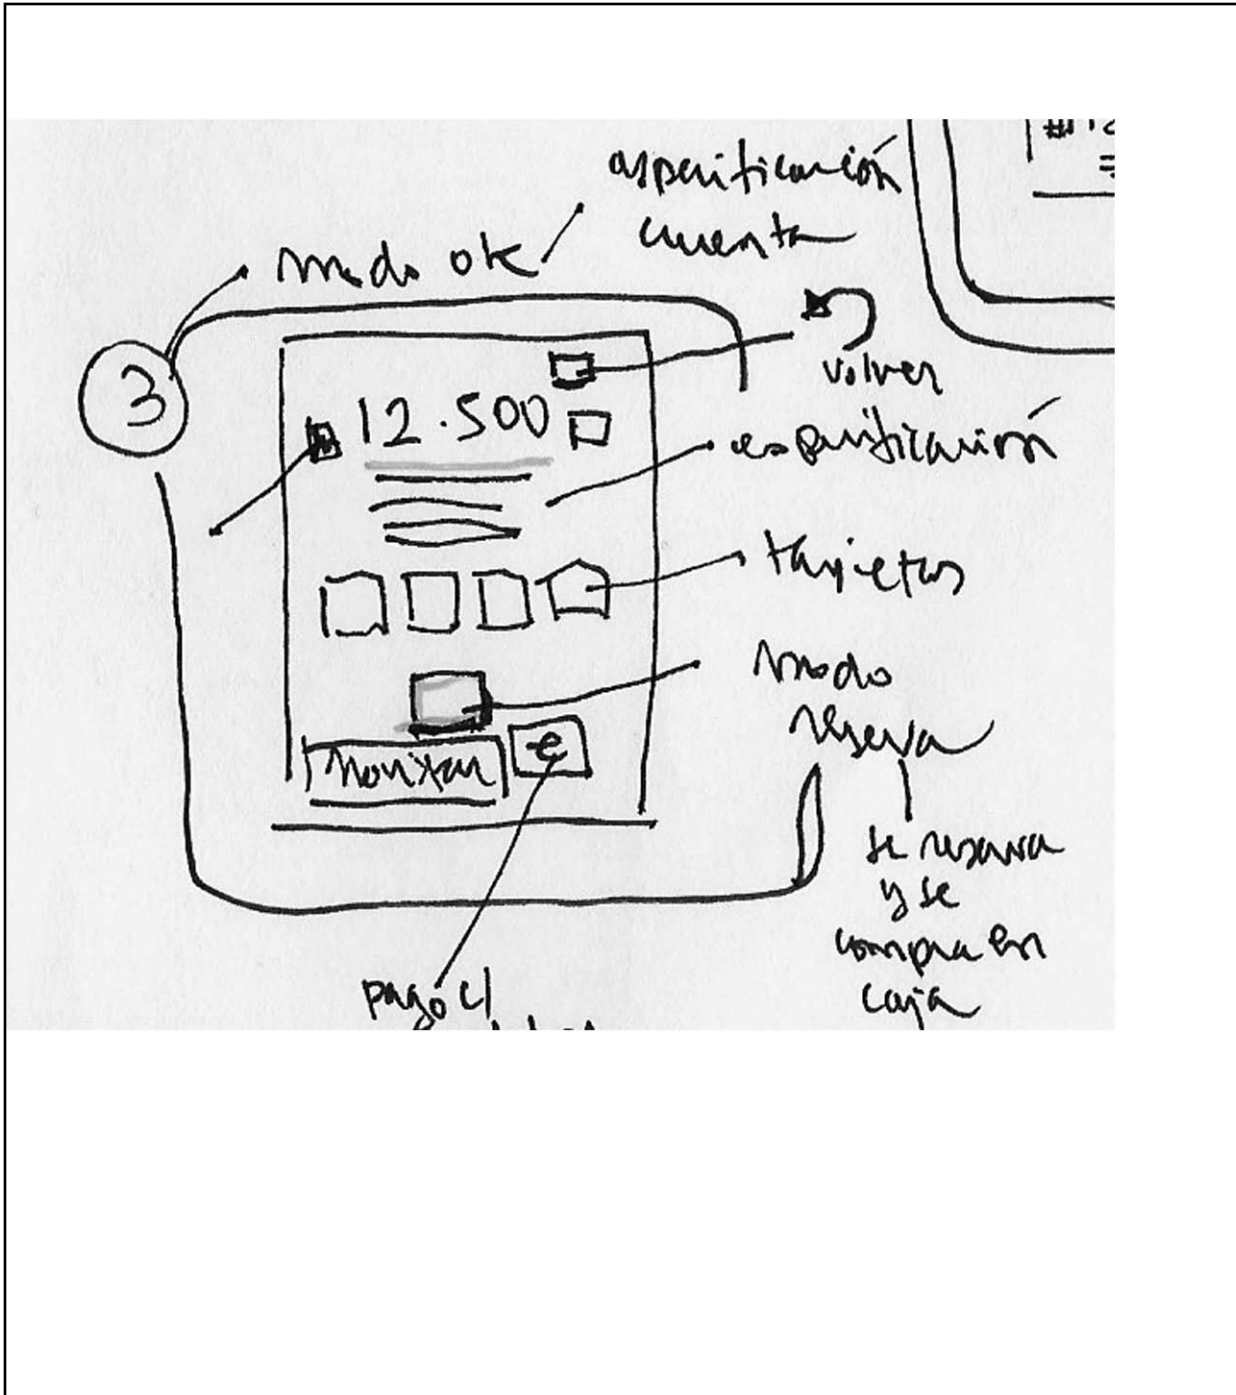 especificación
cuenta
modo ok
3
volver
12.500
especificación
tarjetas
modo
reserva
e
se reserva
y se
compra en
caja
pago c/